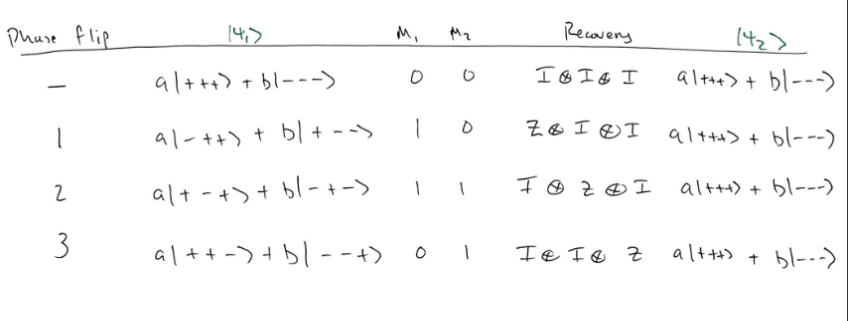 Phase flip |ψ₁⟩ M₁ M₂ Recovery |ψ₂⟩
— a|+++⟩ + b|---⟩ 0 0 I⊗I⊗I a|+++⟩ + b|---⟩
1 a|-++⟩ + b|+--⟩ 1 0 Z⊗I⊗I a|+++⟩ + b|---⟩
2 a|+-+⟩ + b|-+-⟩ 1 1 I⊗Z⊗I a|+++⟩ + b|---⟩
3 a|++-⟩ + b|--+⟩ 0 1 I⊗I⊗Z a|+++⟩ + b|---⟩